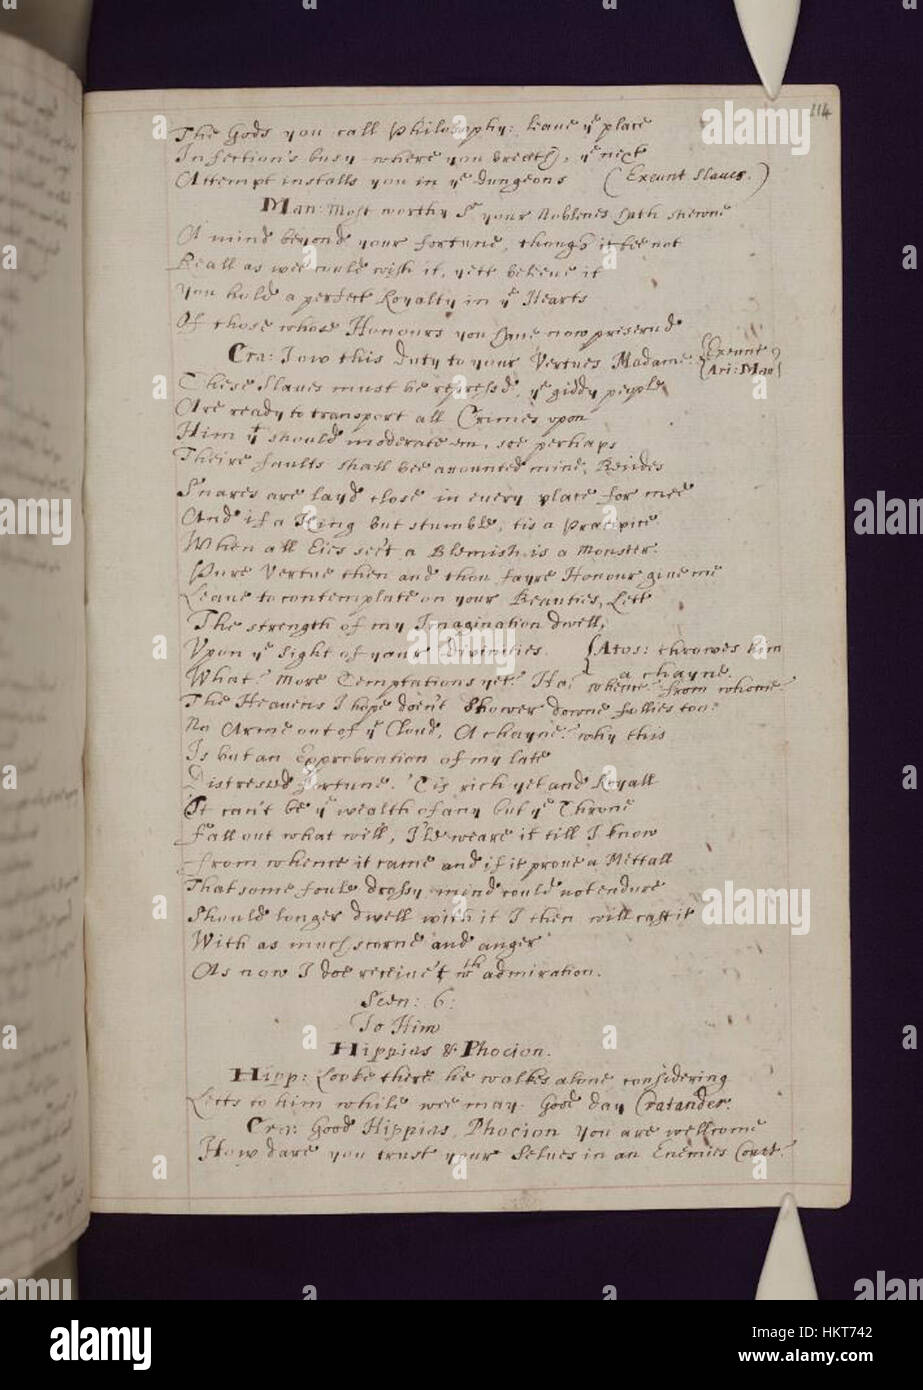 114
The Gods you call Philosophy: leave yᵉ place
Infection's busy where you breath, yᵉ next
Attempt installs you in yᵉ dungeons (Exeunt Slaves.)
Man: Most worthy Sʳ your Noblenes hath shewne
A mind beyond your fortune, though it bee not
Reall as wee could wish it, yett beleeve it
You hold a perfect Royalty in yᵉ Hearts
Of those whose Honours you have now preserv'd
Cra: I ow this duty to your Vertues Madame. {Exeunt
{Ari: Man}
These Slaves must be repress'd, yᵉ giddy people
Are ready to transport all Crimes upon
Him yᵗ should moderate em, soe perhaps
Theire faults shall bee accounted mine, Besides
Snares are layd close in every place for mee
And if a King but stumble, tis a Praecipice
When all Eies see't a Blemish is a Monster.
Pure Vertue then and thou fayre Honour give me
Leave to contemplate on your Beauties, Lett
The strength of my Imagination dwell,
Upon yᵉ sight of your Divinities. {Atos: throwes him
a chayne.
What? More Temptations yet? Ha! whence? from whome?
The Heavens I hope doen't Shower downe follies too?
No Arme out of yᵉ Cloud, A chayne? why this
Is but an Exprobration of my late
Distressed fortune. 'Tis rich yet and Royall
It can't be yᵉ wealth of any but yᵉ Throne
Fall out what will, I'le weare it till I know
From whence it came and if it prove a Mettall
That some foule drossy mind could not endure
Should longer dwell with it I then will cast it
With as much scorne and anger
As now I doe receive't wᵗʰ admiration.
Scen: 6:
To Him
Hippias & Phocion.
Hipp: Looke there he walks alone considering
Letts to him while wee may. Good day Cratander.
Cra: Good Hippias, Phocion you are wellcome
How dare you trust your Selves in an Enemies Court?
alamy
Image ID: HKT742
www.alamy.com